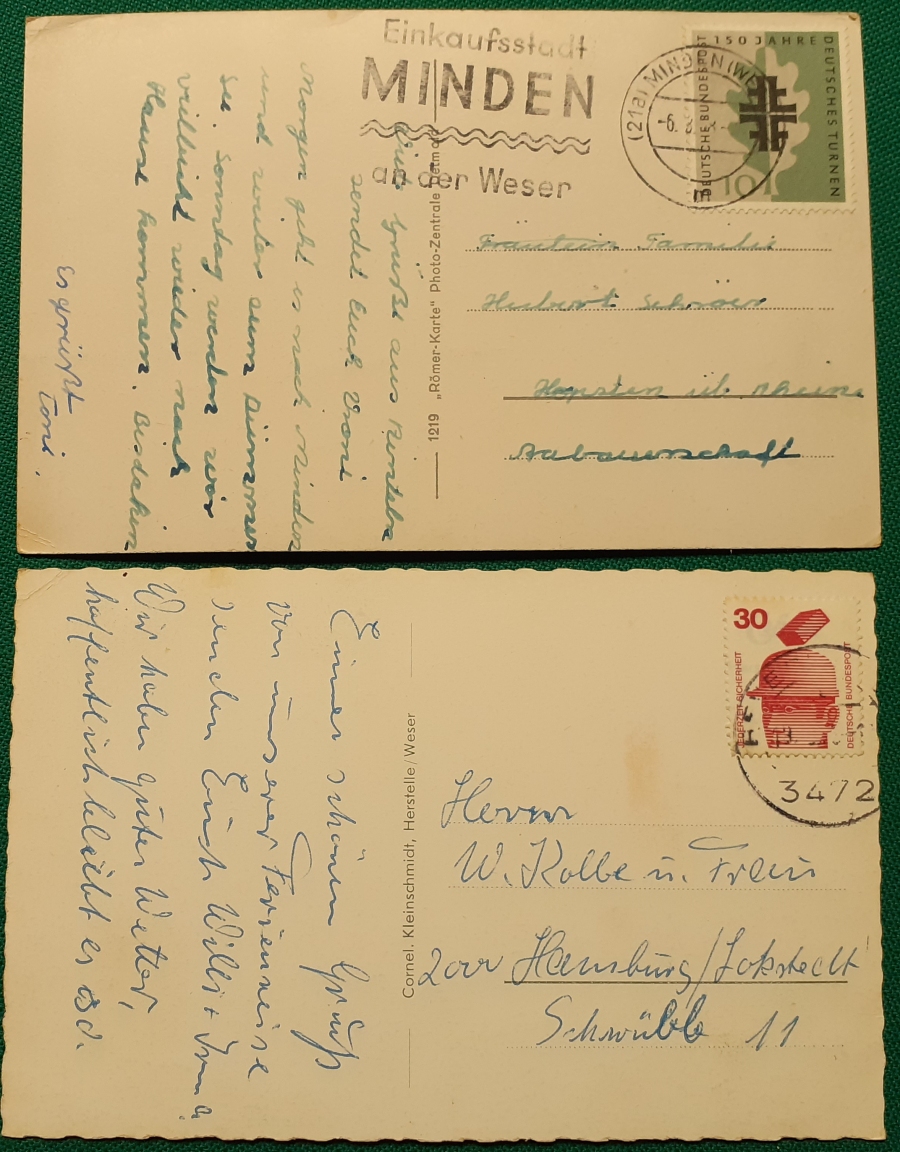 Einkaufsstadt
MINDEN
an der Weser
(21a) MINDEN (WE
-6. 8.
m
150 JAHRE
DEUTSCHES TURNEN
DEUTSCHE BUNDESPOST
10
Grüße aus
sendet Euch Vroni
Morgen geht es nach Minden
und weiter zum
See. Sonntag werden wir
vielleicht wieder nach
Hause kommen.
Es grüßt
Toni.
1219 „Römer-Karte“ Photo-Zentrale
Fräulein Familie
Herbert Schröer
Hopsten üb. Rheine
30
JEDERZEIT SICHERHEIT
DEUTSCHE BUNDESPOST
3472
Einen schönen Gruß
von unserer Ferienreise
senden Euch Willi +
Wir haben gutes Wetter,
hoffentlich bleibt es so.
Cornel. Kleinschmidt, Herstelle/Weser
Herrn
W. Kolbe u. Frau
2000 Hamburg/Lokstedt
11